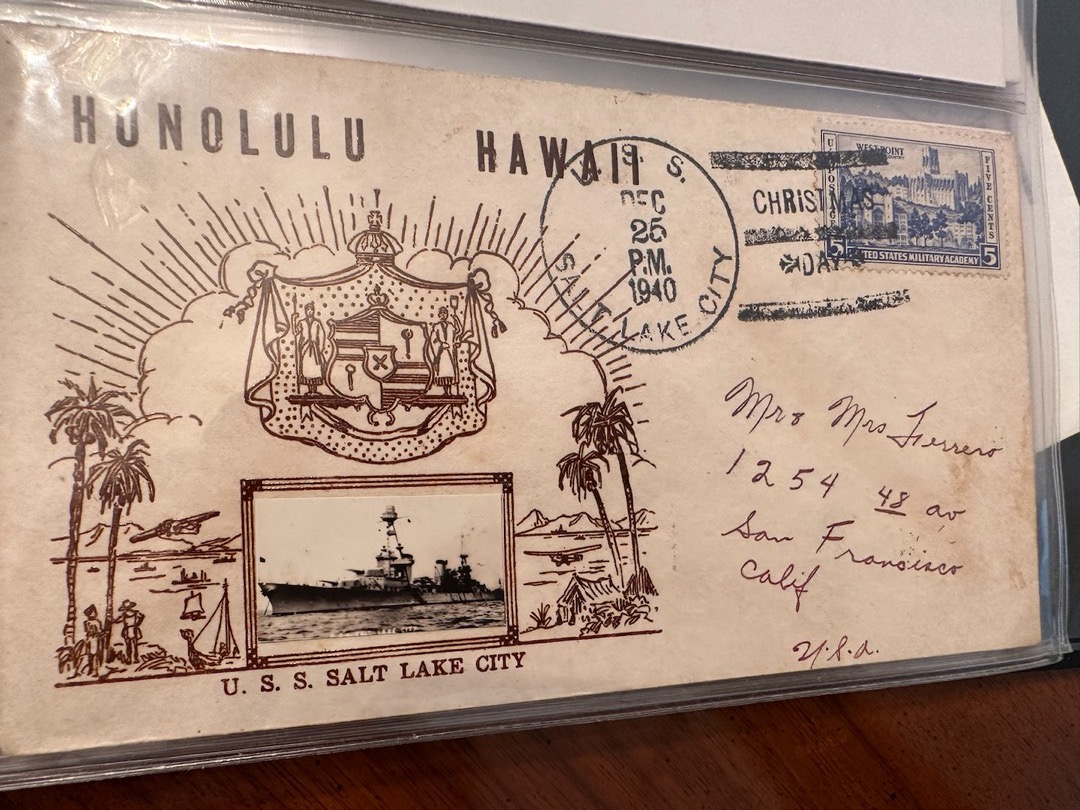 HONOLULU HAWAII
U. S. S.
DEC
25
P.M.
1940
SALT LAKE CITY
CHRISTMAS
DAY
WEST POINT
U.S. POSTAGE
FIVE CENTS
5 5
UNITED STATES MILITARY ACADEMY
Mr & Mrs Ferrero
1254 48 av
San Francisco
Calif
U.S.A.
U. S. S. SALT LAKE CITY